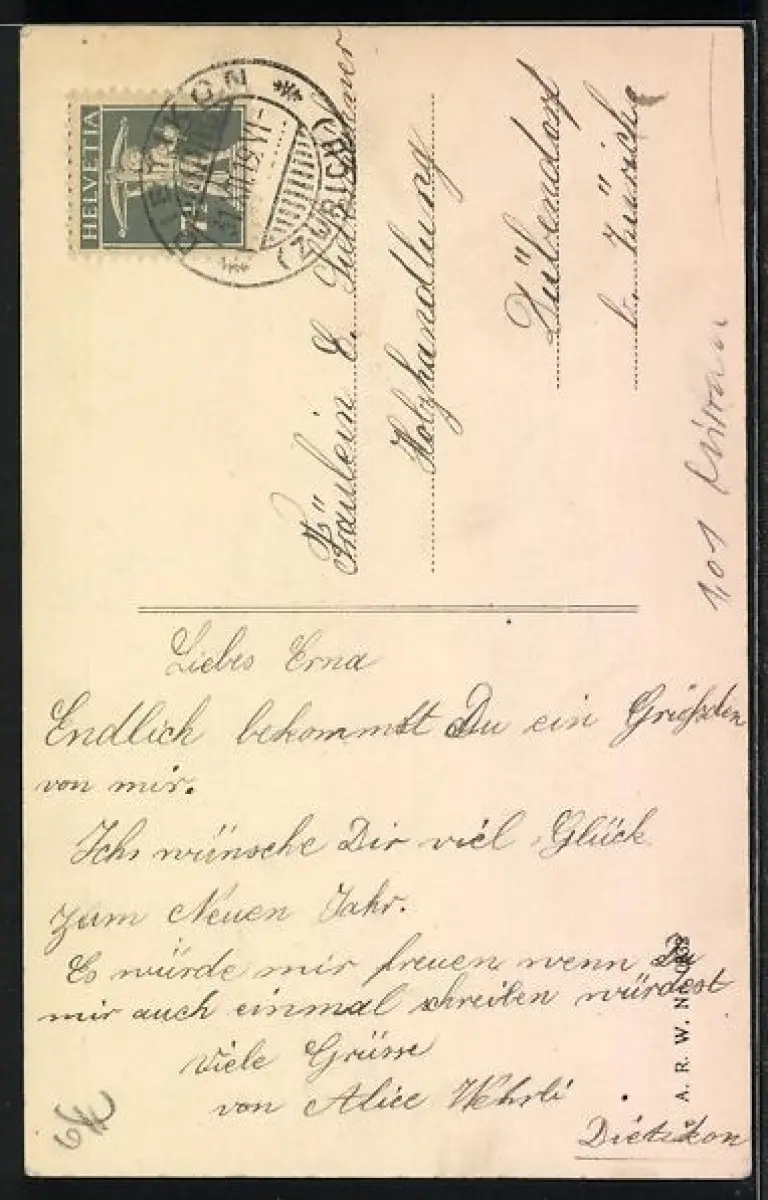 HELVETIA
7½
DIETIKON
(ZÜRICH)
31.XII.19.VI-
Fräulein E.
Holzhandlung
Dübendorf
b. Zürich
1,01
Liebes Erna
Endlich bekommst Du ein Grüssden
von mir.
Ich wünsche Dir viel Glück
zum Neuen Jahr.
Es würde mir freuen wenn Du
mir auch einmal schreiben würdest
Viele Grüsse
von Alice Wehrli
Dietikon
A. R. W. No